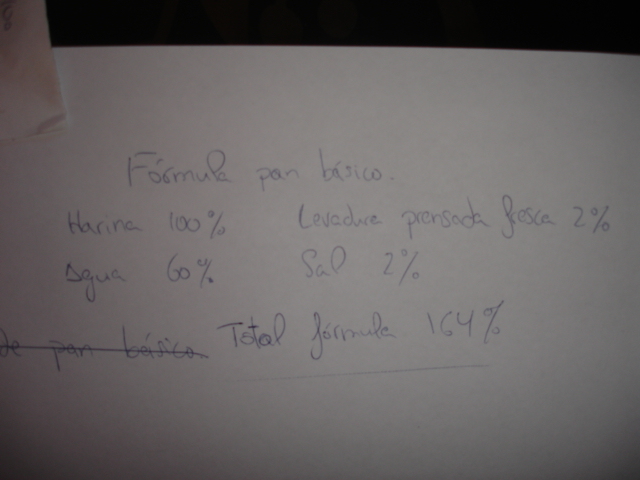 Fórmula pan básico.
Harina 100% Levadura prensada fresca 2%
Agua 60% Sal 2%
de pan básico Total fórmula 164%